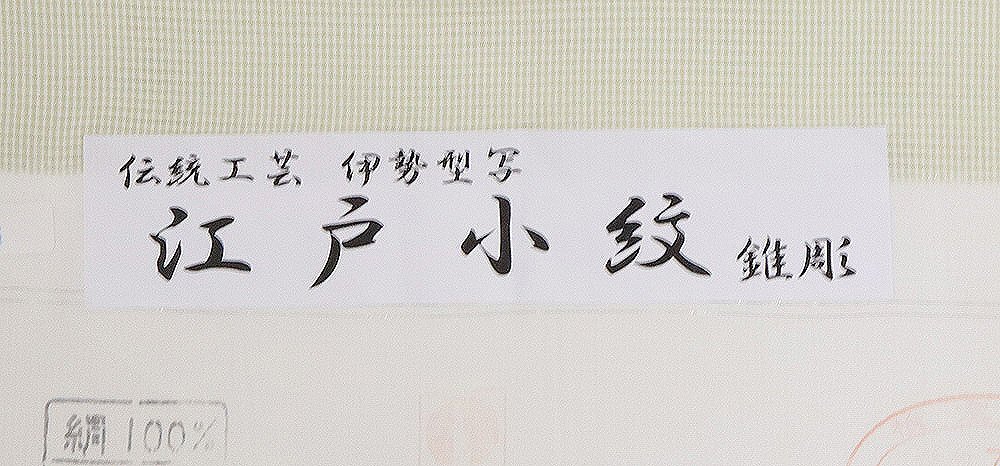 伝統工芸 伊勢型写
江戸小紋 錐彫
絹100%